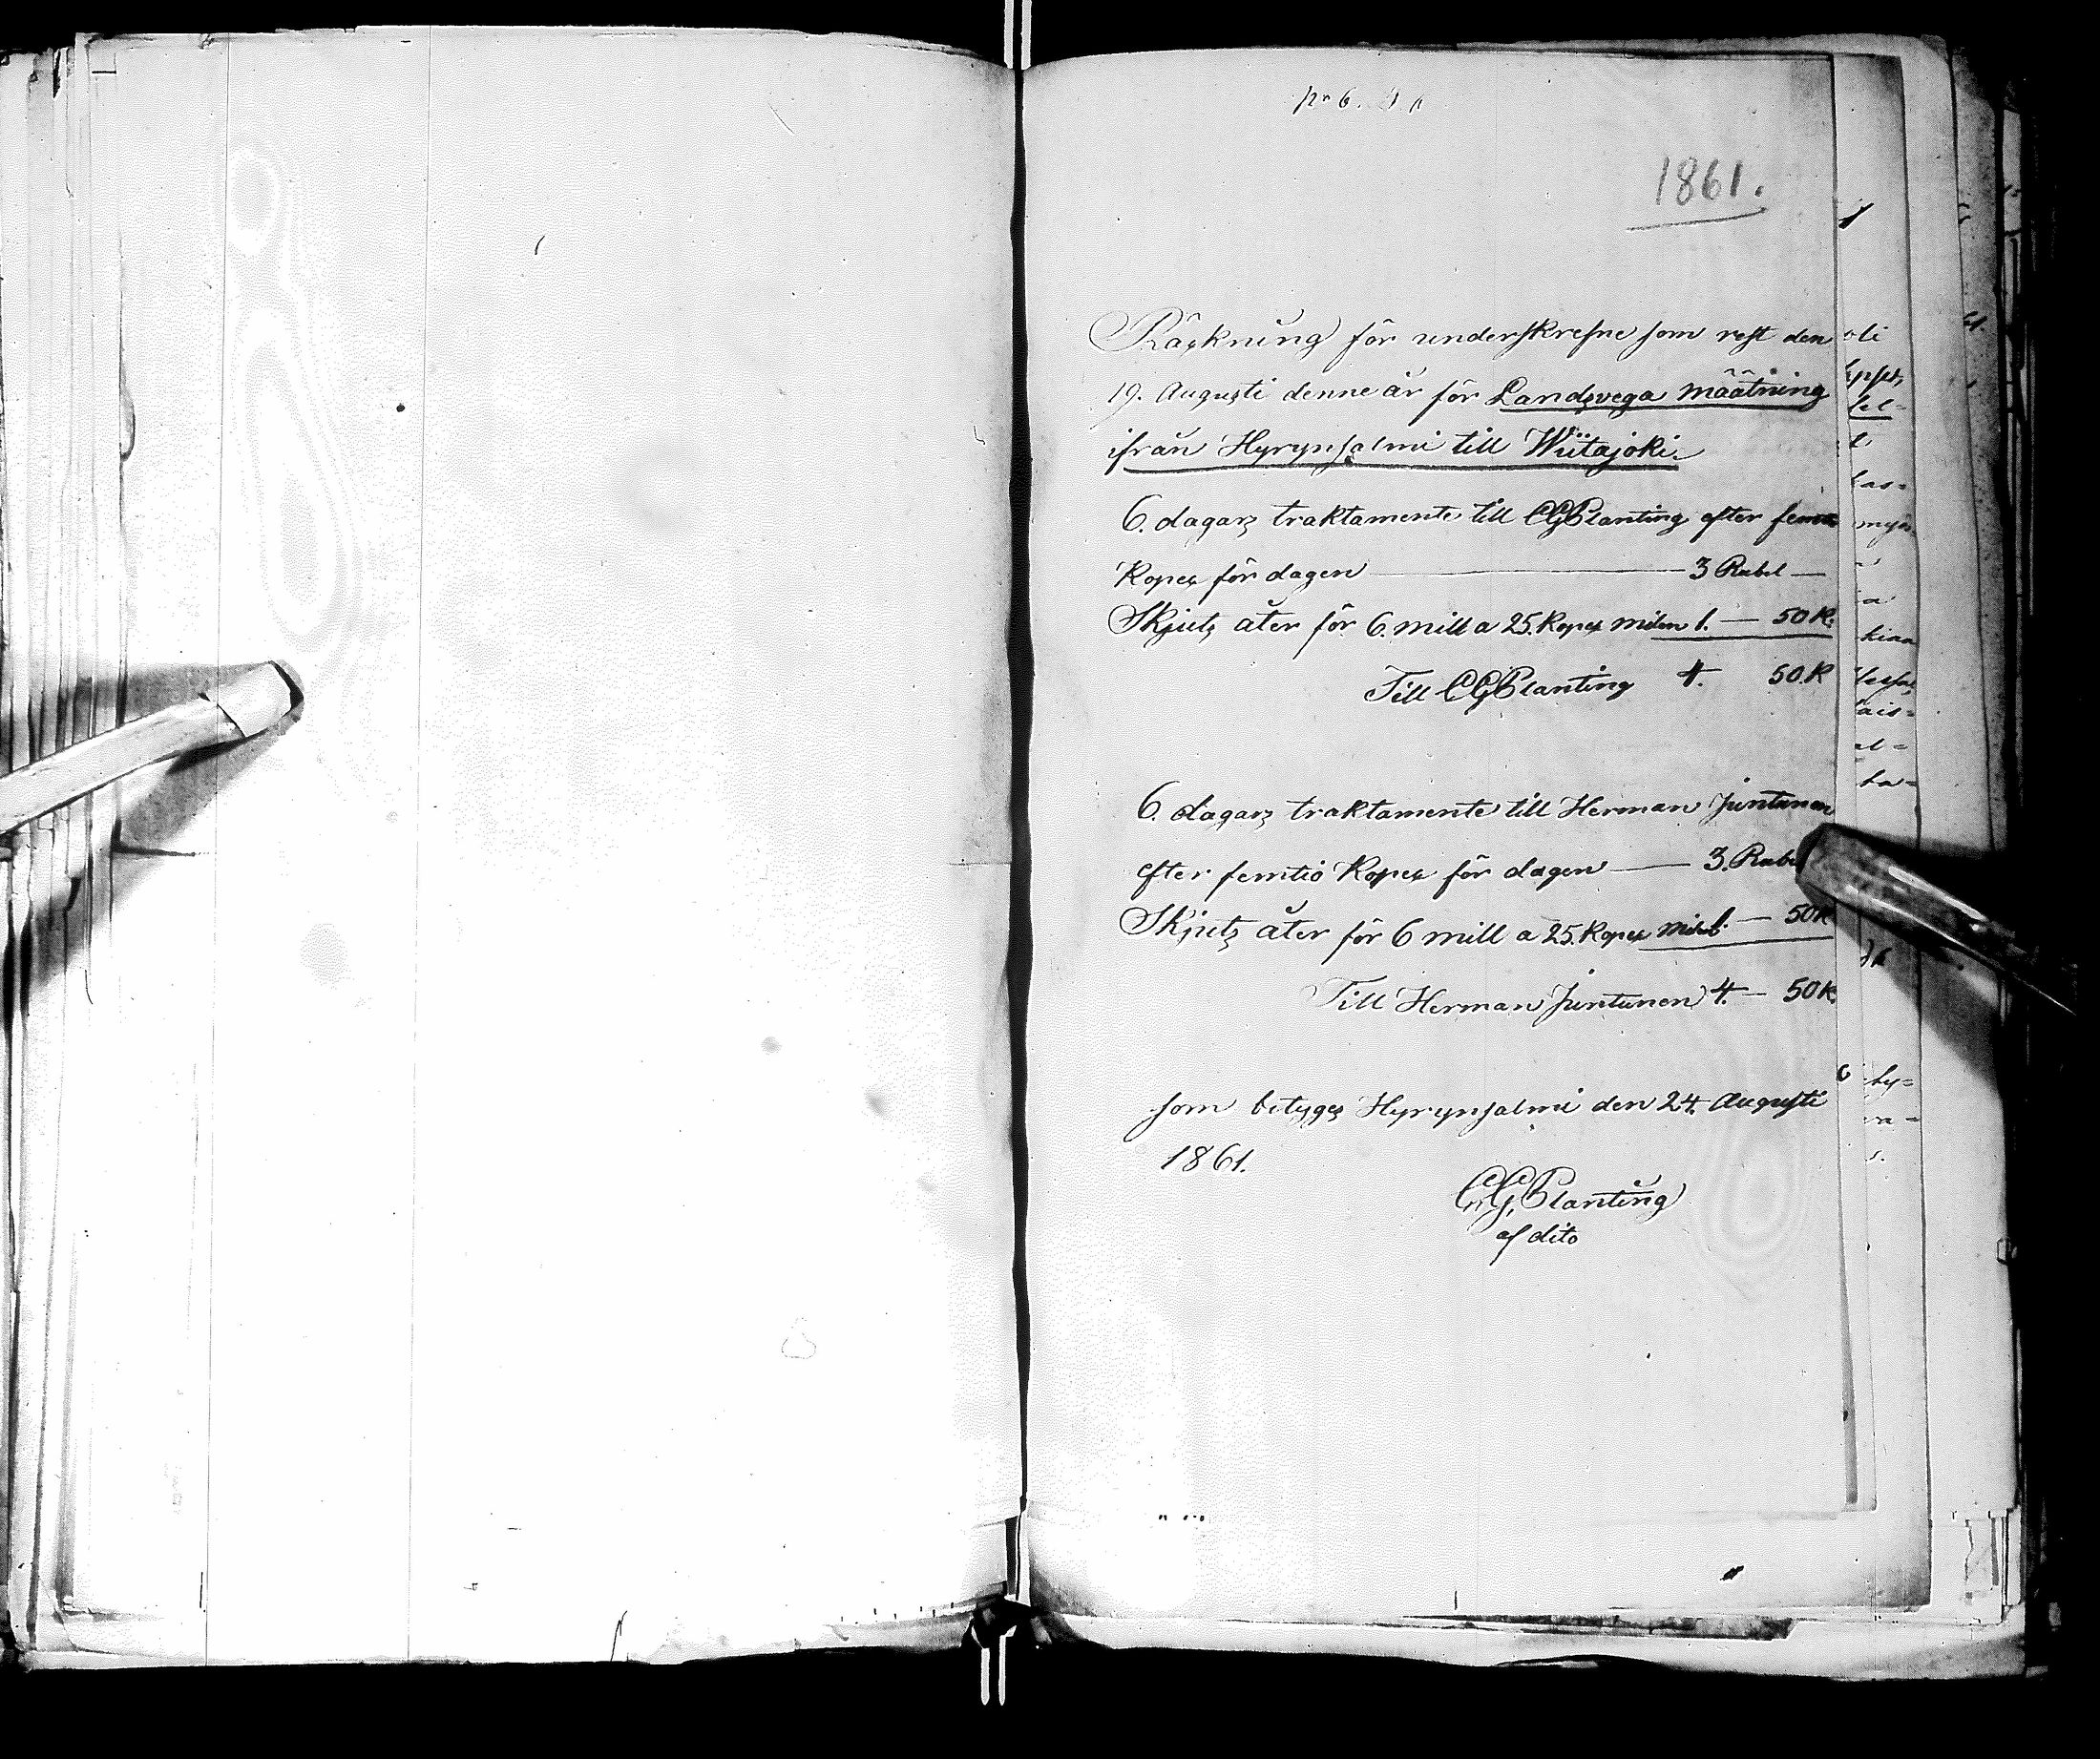 1861.
Räckning för underskrefne som rest den
19. Augusti denne år för Landsvega määtning
ifrån Hyrynsalmi till Wiitajoki.
6. dagars traktamente till CGPlanting efter femtio
Kopex för dagen — 3 Rubel —
Skjuts åter för 6. mill a 25. Kopex milen 1. — 50 K.
Till CGPlanting 4. 50. K
6. dagars traktamente till Herman Juntunen
efter femtio Kopex för dagen — 3. Rubel
Skjuts åter för 6 mill a 25. Kopex milen 1. — 50 K
Till Herman Juntunen 4. — 50 K.
som betyges Hyrynsalmi den 24. Augusti
1861.
C. G. Planting
af dito